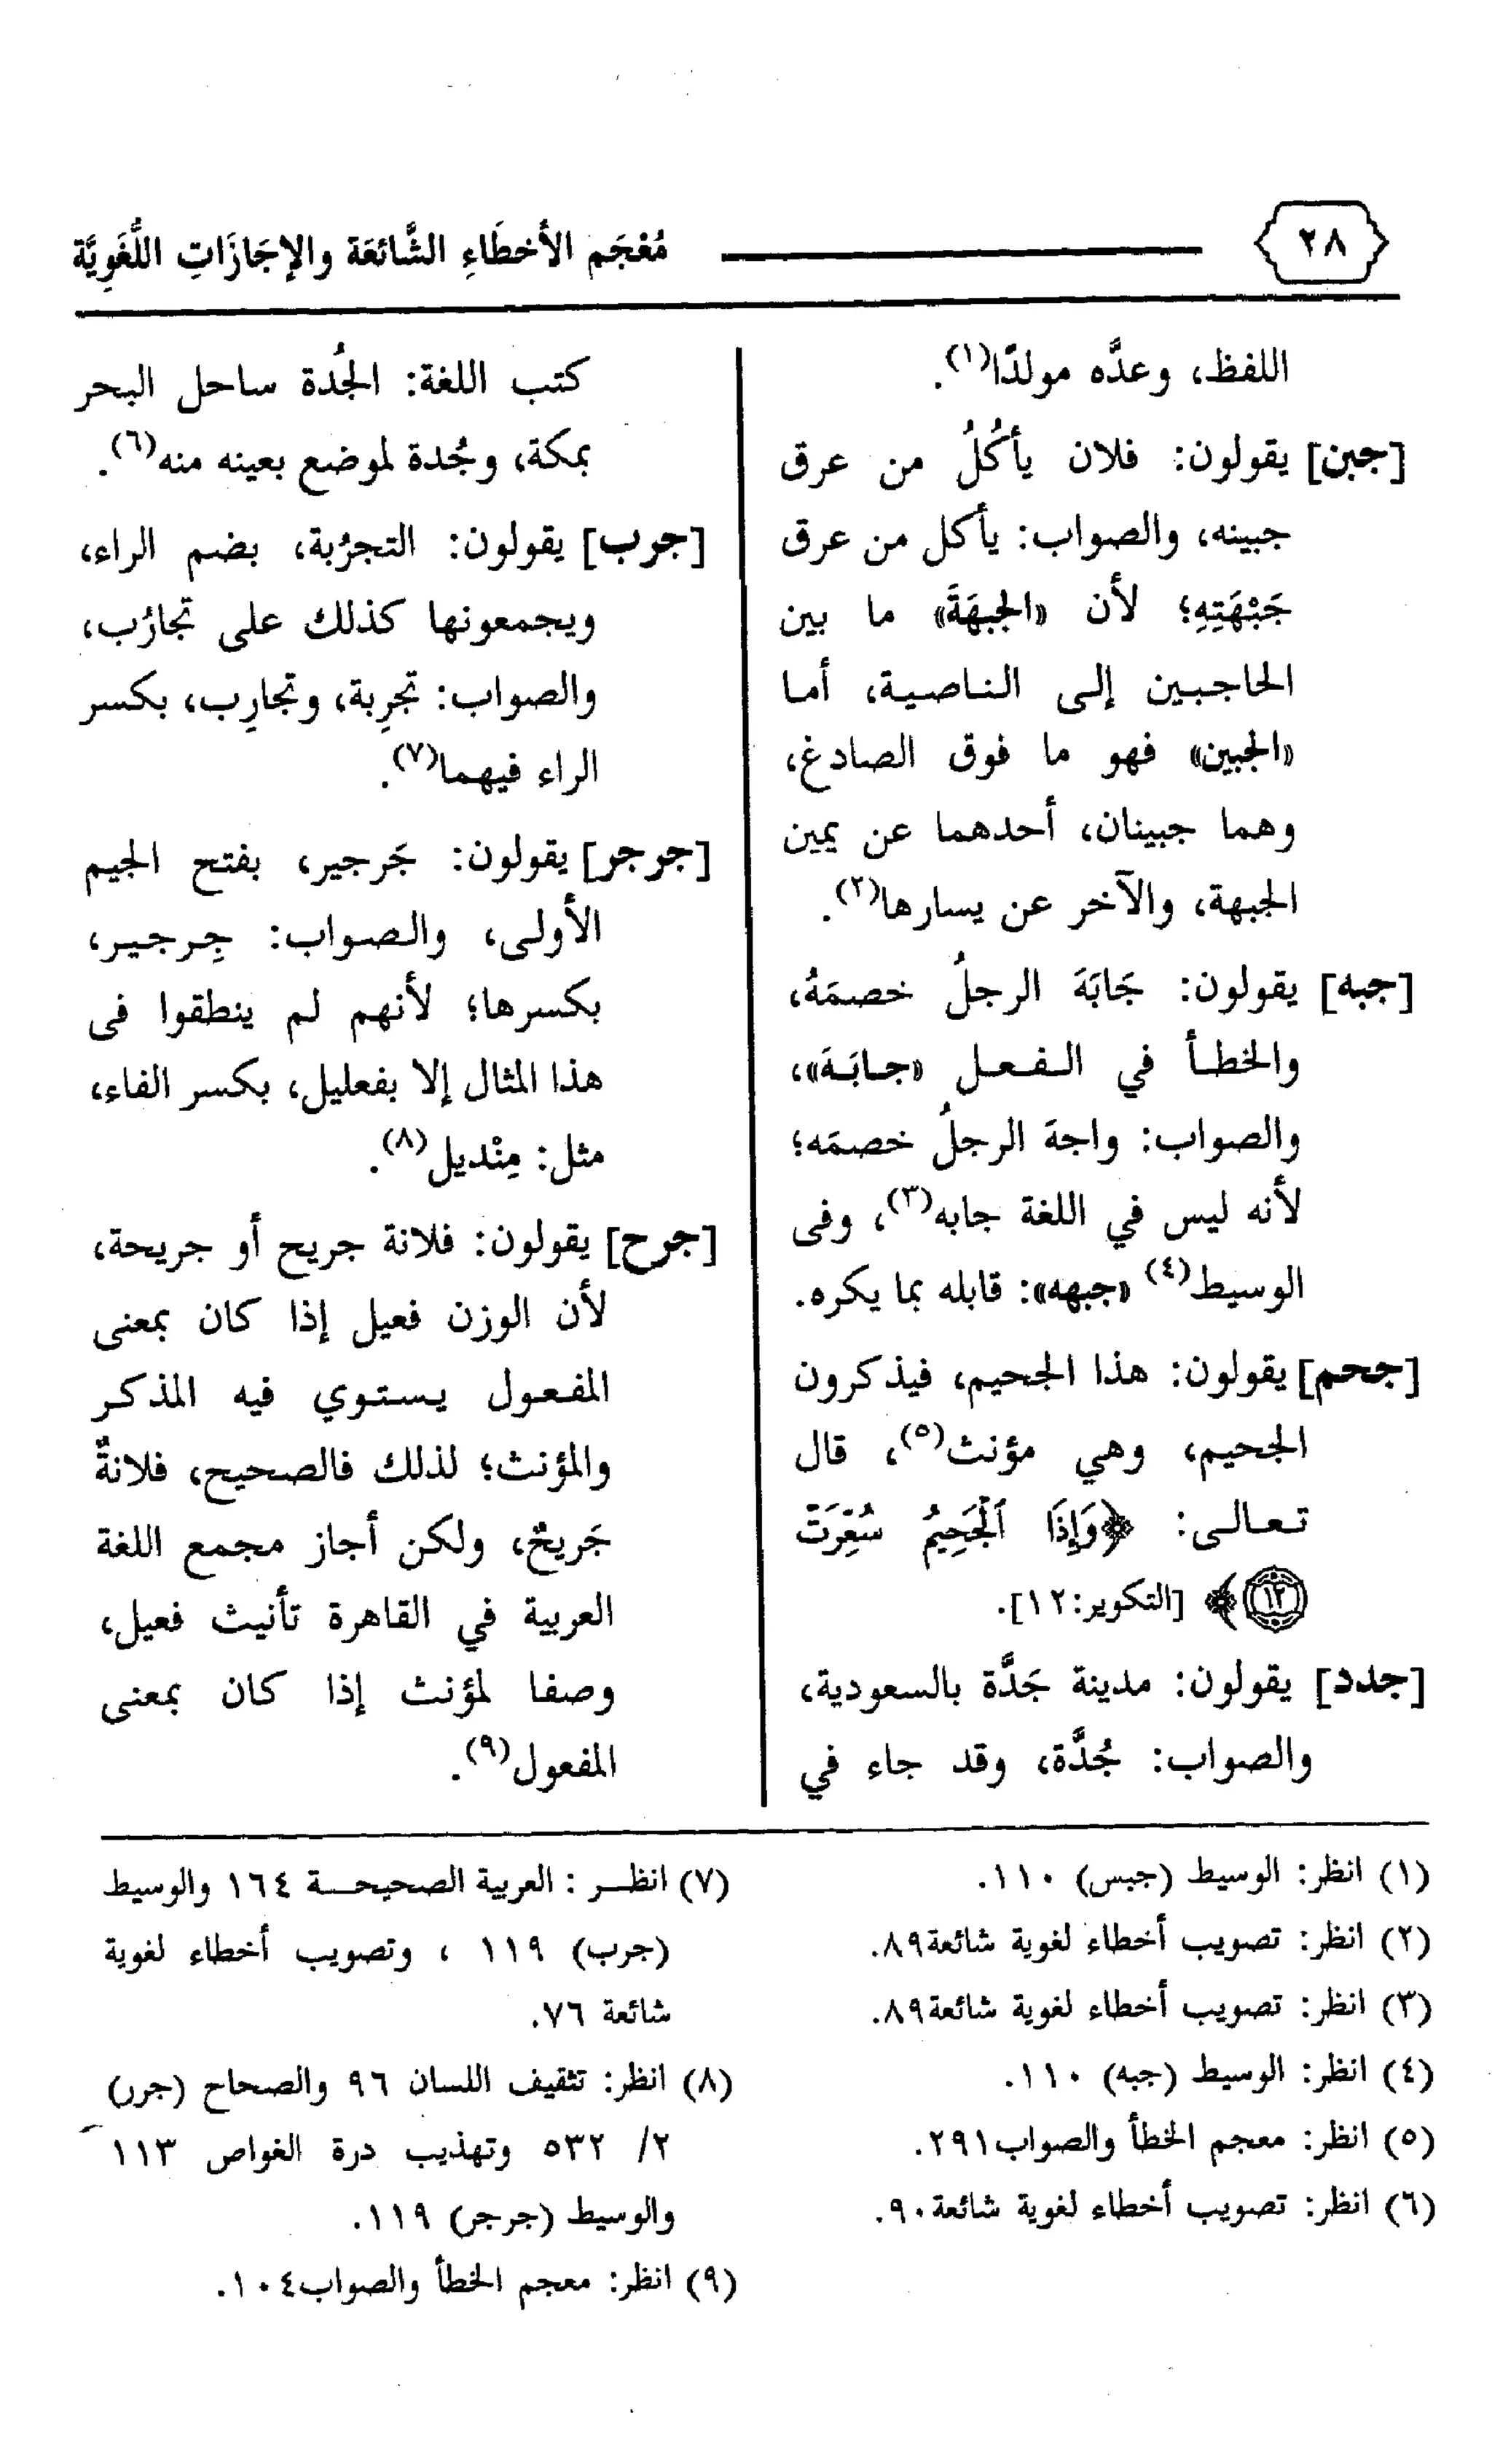 ٢٨
مُعْجَم الأخطَاءِ الشَّائعَة والإجَازَاتِ اللُّغَويَّة
اللفظ، وعدَّه مولدًا(١).
[جبن] يقولون: فلان يأكُلُ من عرق
جبينه، والصواب: يأكل من عرق
جَبْهَتِهِ؛ لأن «الجبهَةَ» ما بين
الحاجبين إلى الناصية، أما
«الجبين» فهو ما فوق الصادغ،
وهما جبينان، أحدهما عن يمين
الجبهة، والآخر عن يسارها(٢).
[جبه] يقولون: جَابَهَ الرجلُ خصمَهُ،
والخطأ في الفعل «جابَهَ»،
والصواب: واجهَ الرجلُ خصمَه؛
لأنه ليس في اللغة جابه(٣)، وفى
الوسيط(٤) «جبهه»: قابله بما يكره.
[جحم] يقولون: هذا الجحيم، فيذكرون
الجحيم، وهي مؤنث(٥)، قال
تعالى: ﴿وَإِذَا ٱلْجَحِيمُ سُعِّرَتْ
١٢﴾ [التكوير:١٢].
[جدد] يقولون: مدينة جَدَّة بالسعودية،
والصواب: جُدَّة، وقد جاء في
كتب اللغة: الجُدة ساحل البحر
بمكة، وجُدة لموضع بعينه منه(٦).
[جرب] يقولون: التجرُبة، بضم الراء،
ويجمعونها كذلك على تجارُب،
والصواب: تجرِبة، وتجارِب، بكسر
الراء فيهما(٧).
[جرجر] يقولون: جَرجير، بفتح الجيم
الأولى، والصواب: جِرجير،
بكسرها؛ لأنهم لم ينطقوا فى
هذا المثال إلا بفعليل، بكسر الفاء،
مثل: مِنْديل(٨).
[جرح] يقولون: فلانة جريح أو جريحة،
لأن الوزن فعيل إذا كان بمعنى
المفعول يستوي فيه المذكر
والمؤنث؛ لذلك فالصحيح، فلانةٌ
جَريحٌ، ولكن أجاز مجمع اللغة
العربية في القاهرة تأنيث فعيل،
وصفا لمؤنث إذا كان بمعنى
المفعول(٩).
(١) انظر: الوسيط (جبس) ١١٠.
(٢) انظر: تصويب أخطاء لغوية شائعة٨٩.
(٣) انظر: تصويب أخطاء لغوية شائعة٨٩.
(٤) انظر: الوسيط (جبه) ١١٠.
(٥) انظر: معجم الخطأ والصواب٢٩١.
(٦) انظر: تصويب أخطاء لغوية شائعة٩٠.
(٧) انظر : العربية الصحيحة ١٦٤ والوسيط
(جرب) ١١٩ ، وتصويب أخطاء لغوية
شائعة ٧٦.
(٨) انظر: تثقيف اللسان ٩٦ والصحاح (جرر)
٢/ ٥٣٢ وتهذيب درة الغواص ١١٣
والوسيط (جرجر) ١١٩.
(٩) انظر: معجم الخطأ والصواب١٠٤.